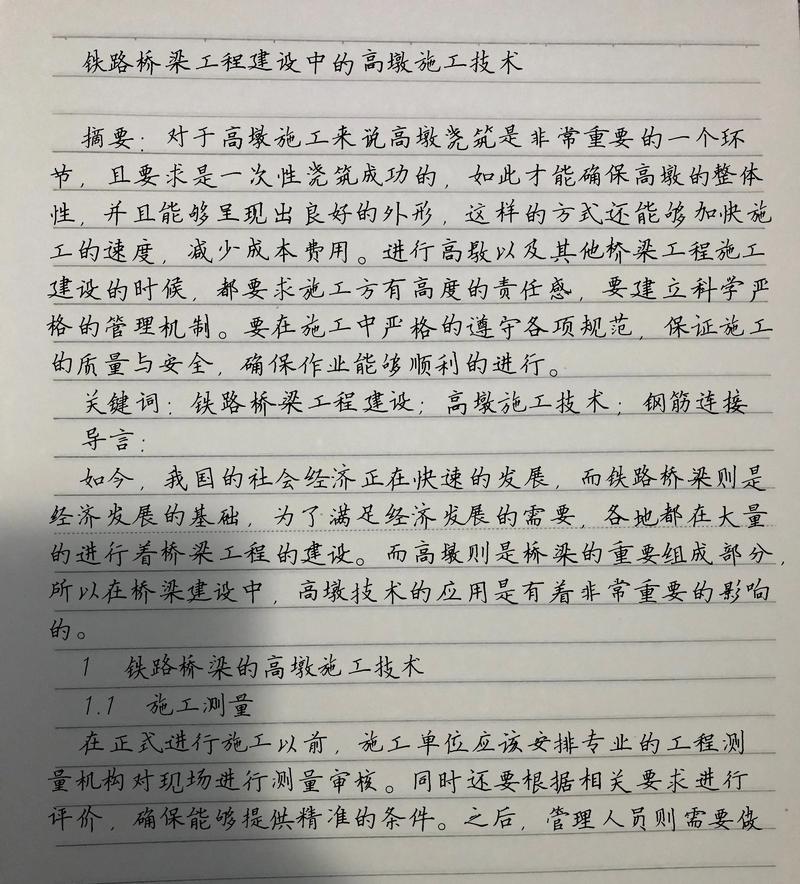 铁路桥梁工程建设中的高墩施工技术
摘要：对于高墩施工来说高墩浇筑是非常重要的一个环
节，且要求是一次性浇筑成功的，如此才能确保高墩的整体
性，并且能够呈现出良好的外形，这样的方式还能够加快施
工的速度，减少成本费用。进行高墩以及其他桥梁工程施工
建设的时候，都要求施工方有高度的责任感，要建立科学严
格的管理机制。要在施工中严格的遵守各项规范，保证施工
的质量与安全，确保作业能够顺利的进行。
关键词：铁路桥梁工程建设；高墩施工技术；钢筋连接
导言：
如今，我国的社会经济正在快速的发展，而铁路桥梁则是
经济发展的基础，为了满足经济发展的需要，各地都在大量
的进行着桥梁工程的建设。而高墩则是桥梁的重要组成部分，
所以在桥梁建设中，高墩技术的应用是有着非常重要的影响
的。
1 铁路桥梁的高墩施工技术
1.1 施工测量
在正式进行施工以前，施工单位应该安排专业的工程测
量机构对现场进行测量审核。同时还要根据相关要求进行
评价，确保能够提供精准的条件。之后，管理人员则需要做